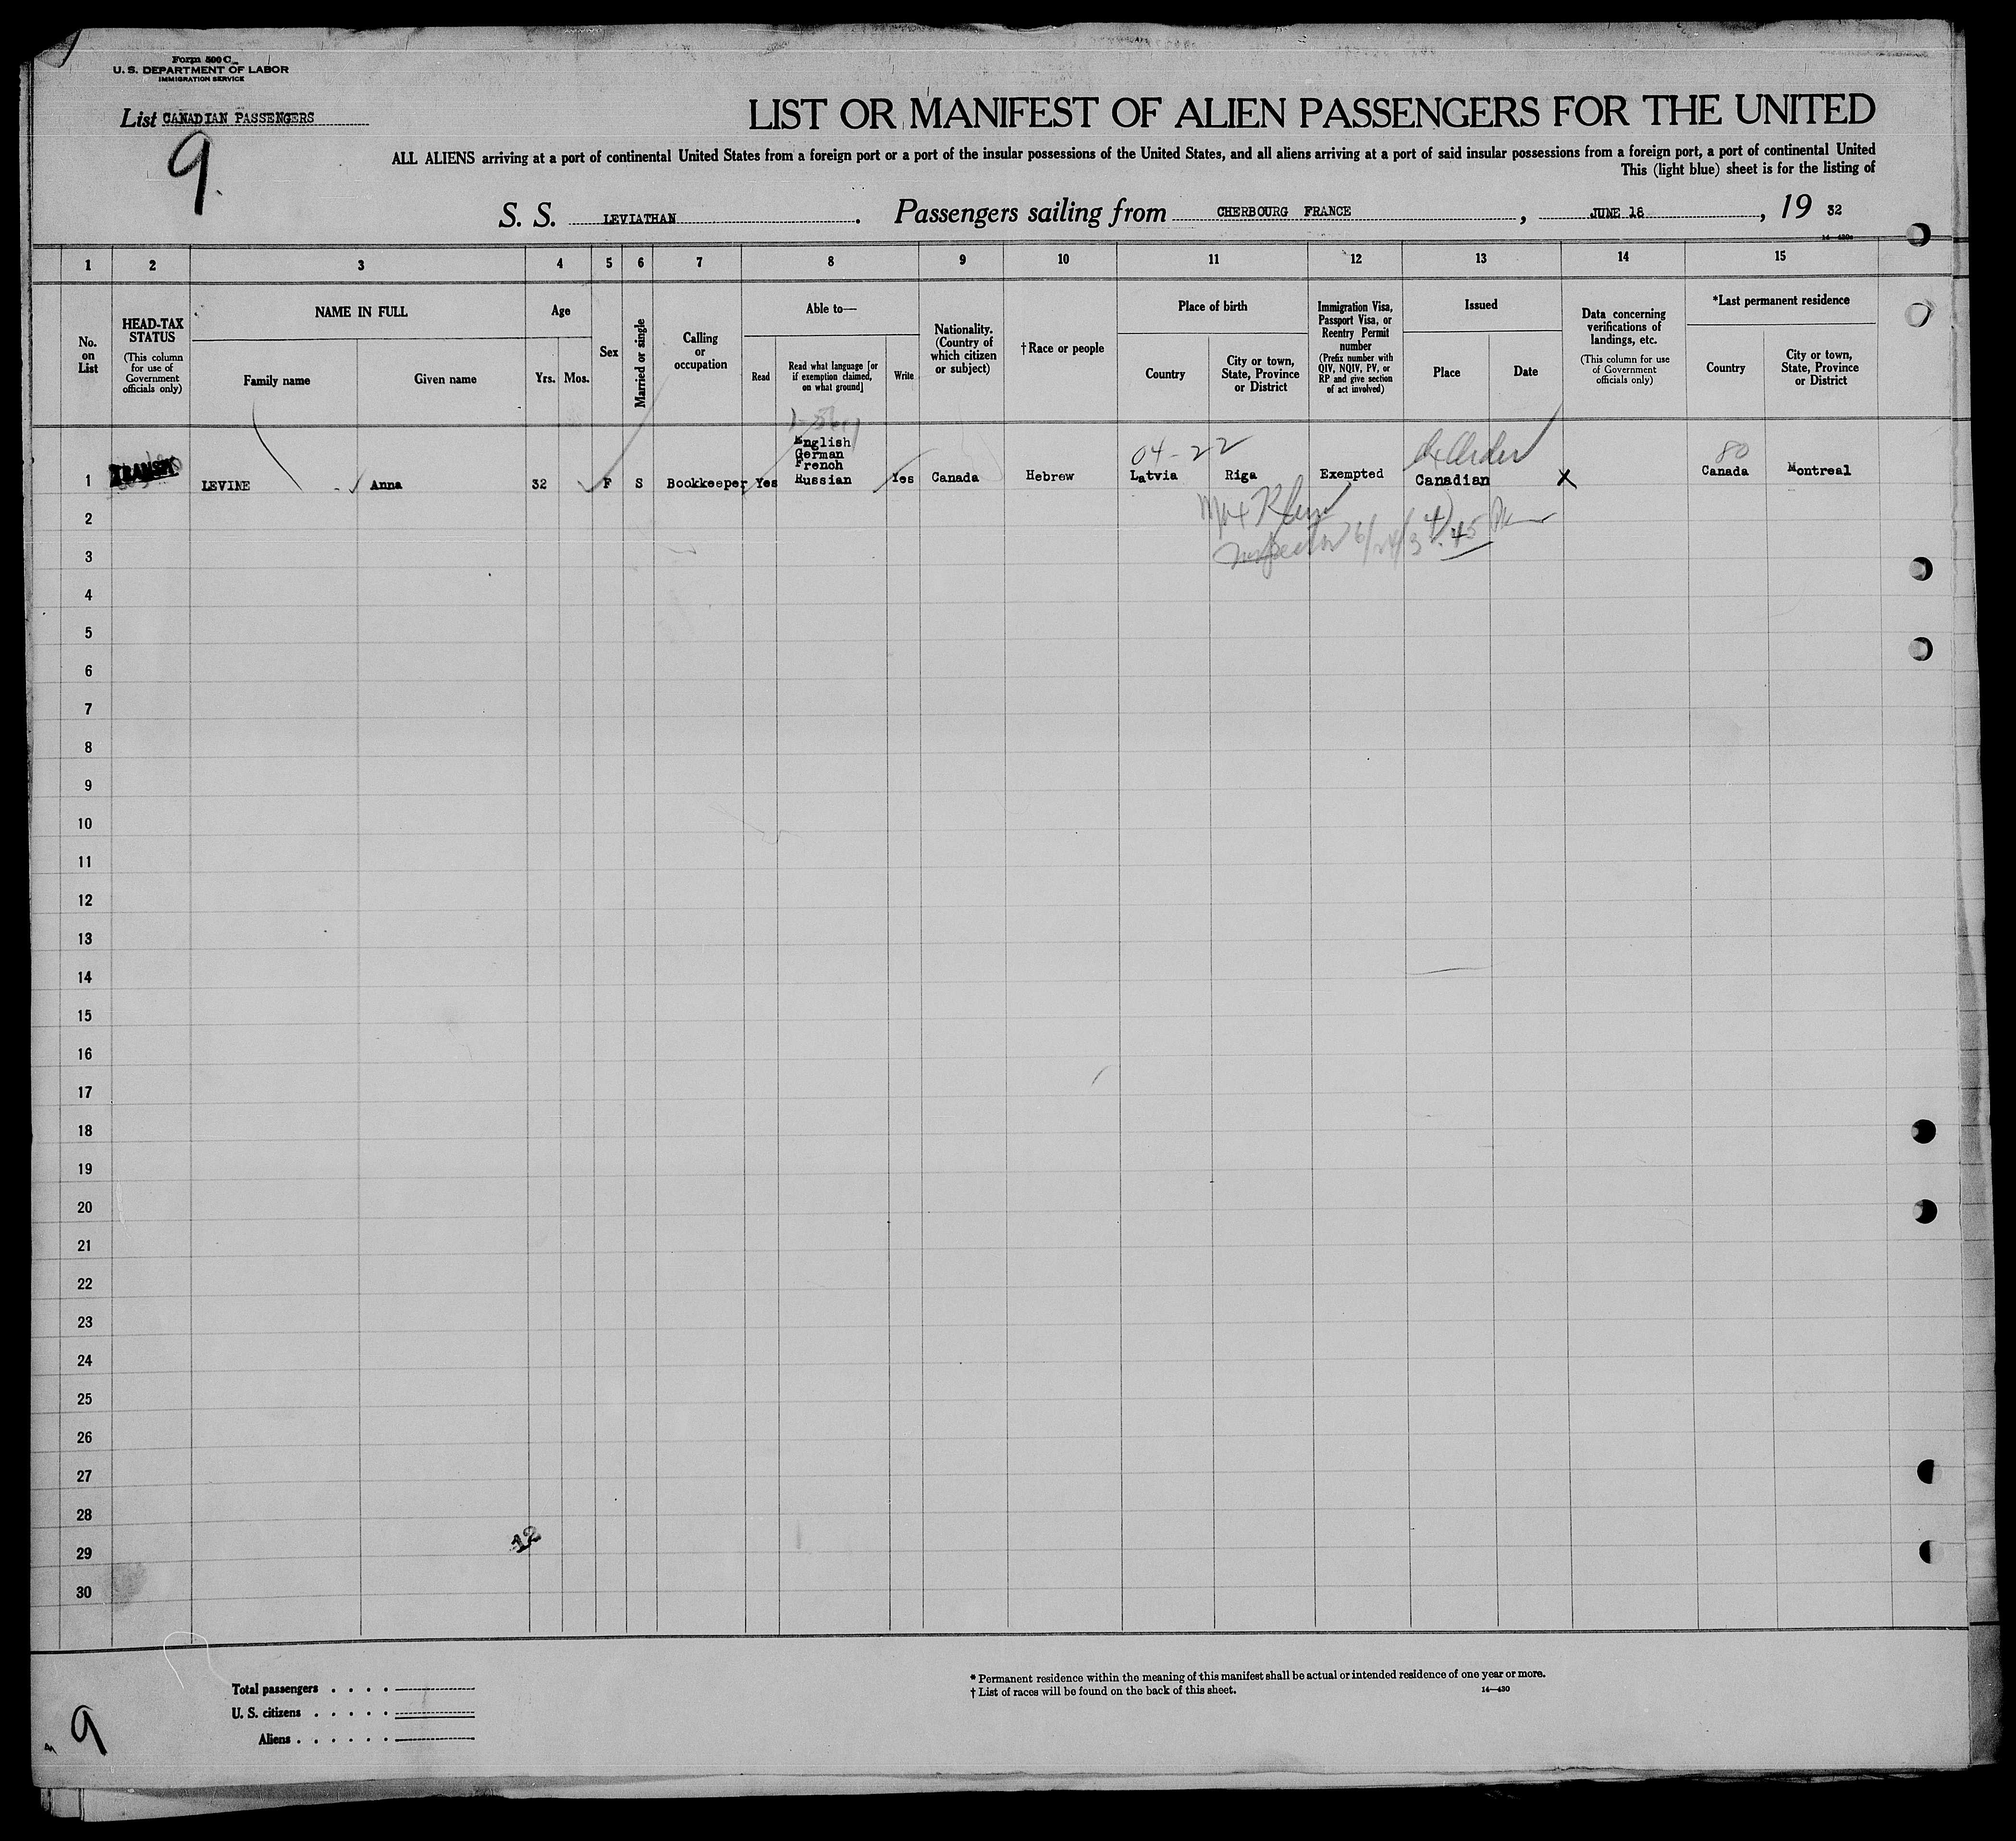 Form 500 C
U. S. DEPARTMENT OF LABOR
IMMIGRATION SERVICE
List CANADIAN PASSENGERS
9.
LIST OR MANIFEST OF ALIEN PASSENGERS FOR THE UNITED
ALL ALIENS arriving at a port of continental United States from a foreign port or a port of the insular possessions of the United States, and all aliens arriving at a port of said insular possessions from a foreign port, a port of continental United
This (light blue) sheet is for the listing of
S. S. LEVIATHAN. Passengers sailing from CHERBOURG FRANCE, JUNE 18, 19 32
1 2 3 4 5 6 7 8 9 10 11 12 13 14 15
No. on List
HEAD-TAX STATUS
(This column for use of Government officials only)
NAME IN FULL
Family name
Given name
Age
Yrs. Mos.
Sex
Married or single
Calling or occupation
Able to—
Read
Read what language [or if exemption claimed, on what ground]
Write
Nationality. (Country of which citizen or subject)
†Race or people
Place of birth
Country
City or town, State, Province or District
Immigration Visa, Passport Visa, or Reentry Permit number
(Prefix number with QIV, NQIV, PV, or RP and give section of act involved)
Issued
Place
Date
Data concerning verifications of landings, etc.
(This column for use of Government officials only)
*Last permanent residence
Country
City or town, State, Province or District
04-22
80
1 TRANSIT LEVINE Anna 32 F S Bookkeeper Yes English German French Russian Yes Canada Hebrew Latvia Riga Exempted Canadian X Canada Montreal
2
Inspector
3
4
5
6
7
8
9
10
11
12
13
14
15
16
17
18
19
20
21
22
23
24
25
26
27
28
29
30
Total passengers
U. S. citizens
Aliens
9
* Permanent residence within the meaning of this manifest shall be actual or intended residence of one year or more.
† List of races will be found on the back of this sheet.
14—430